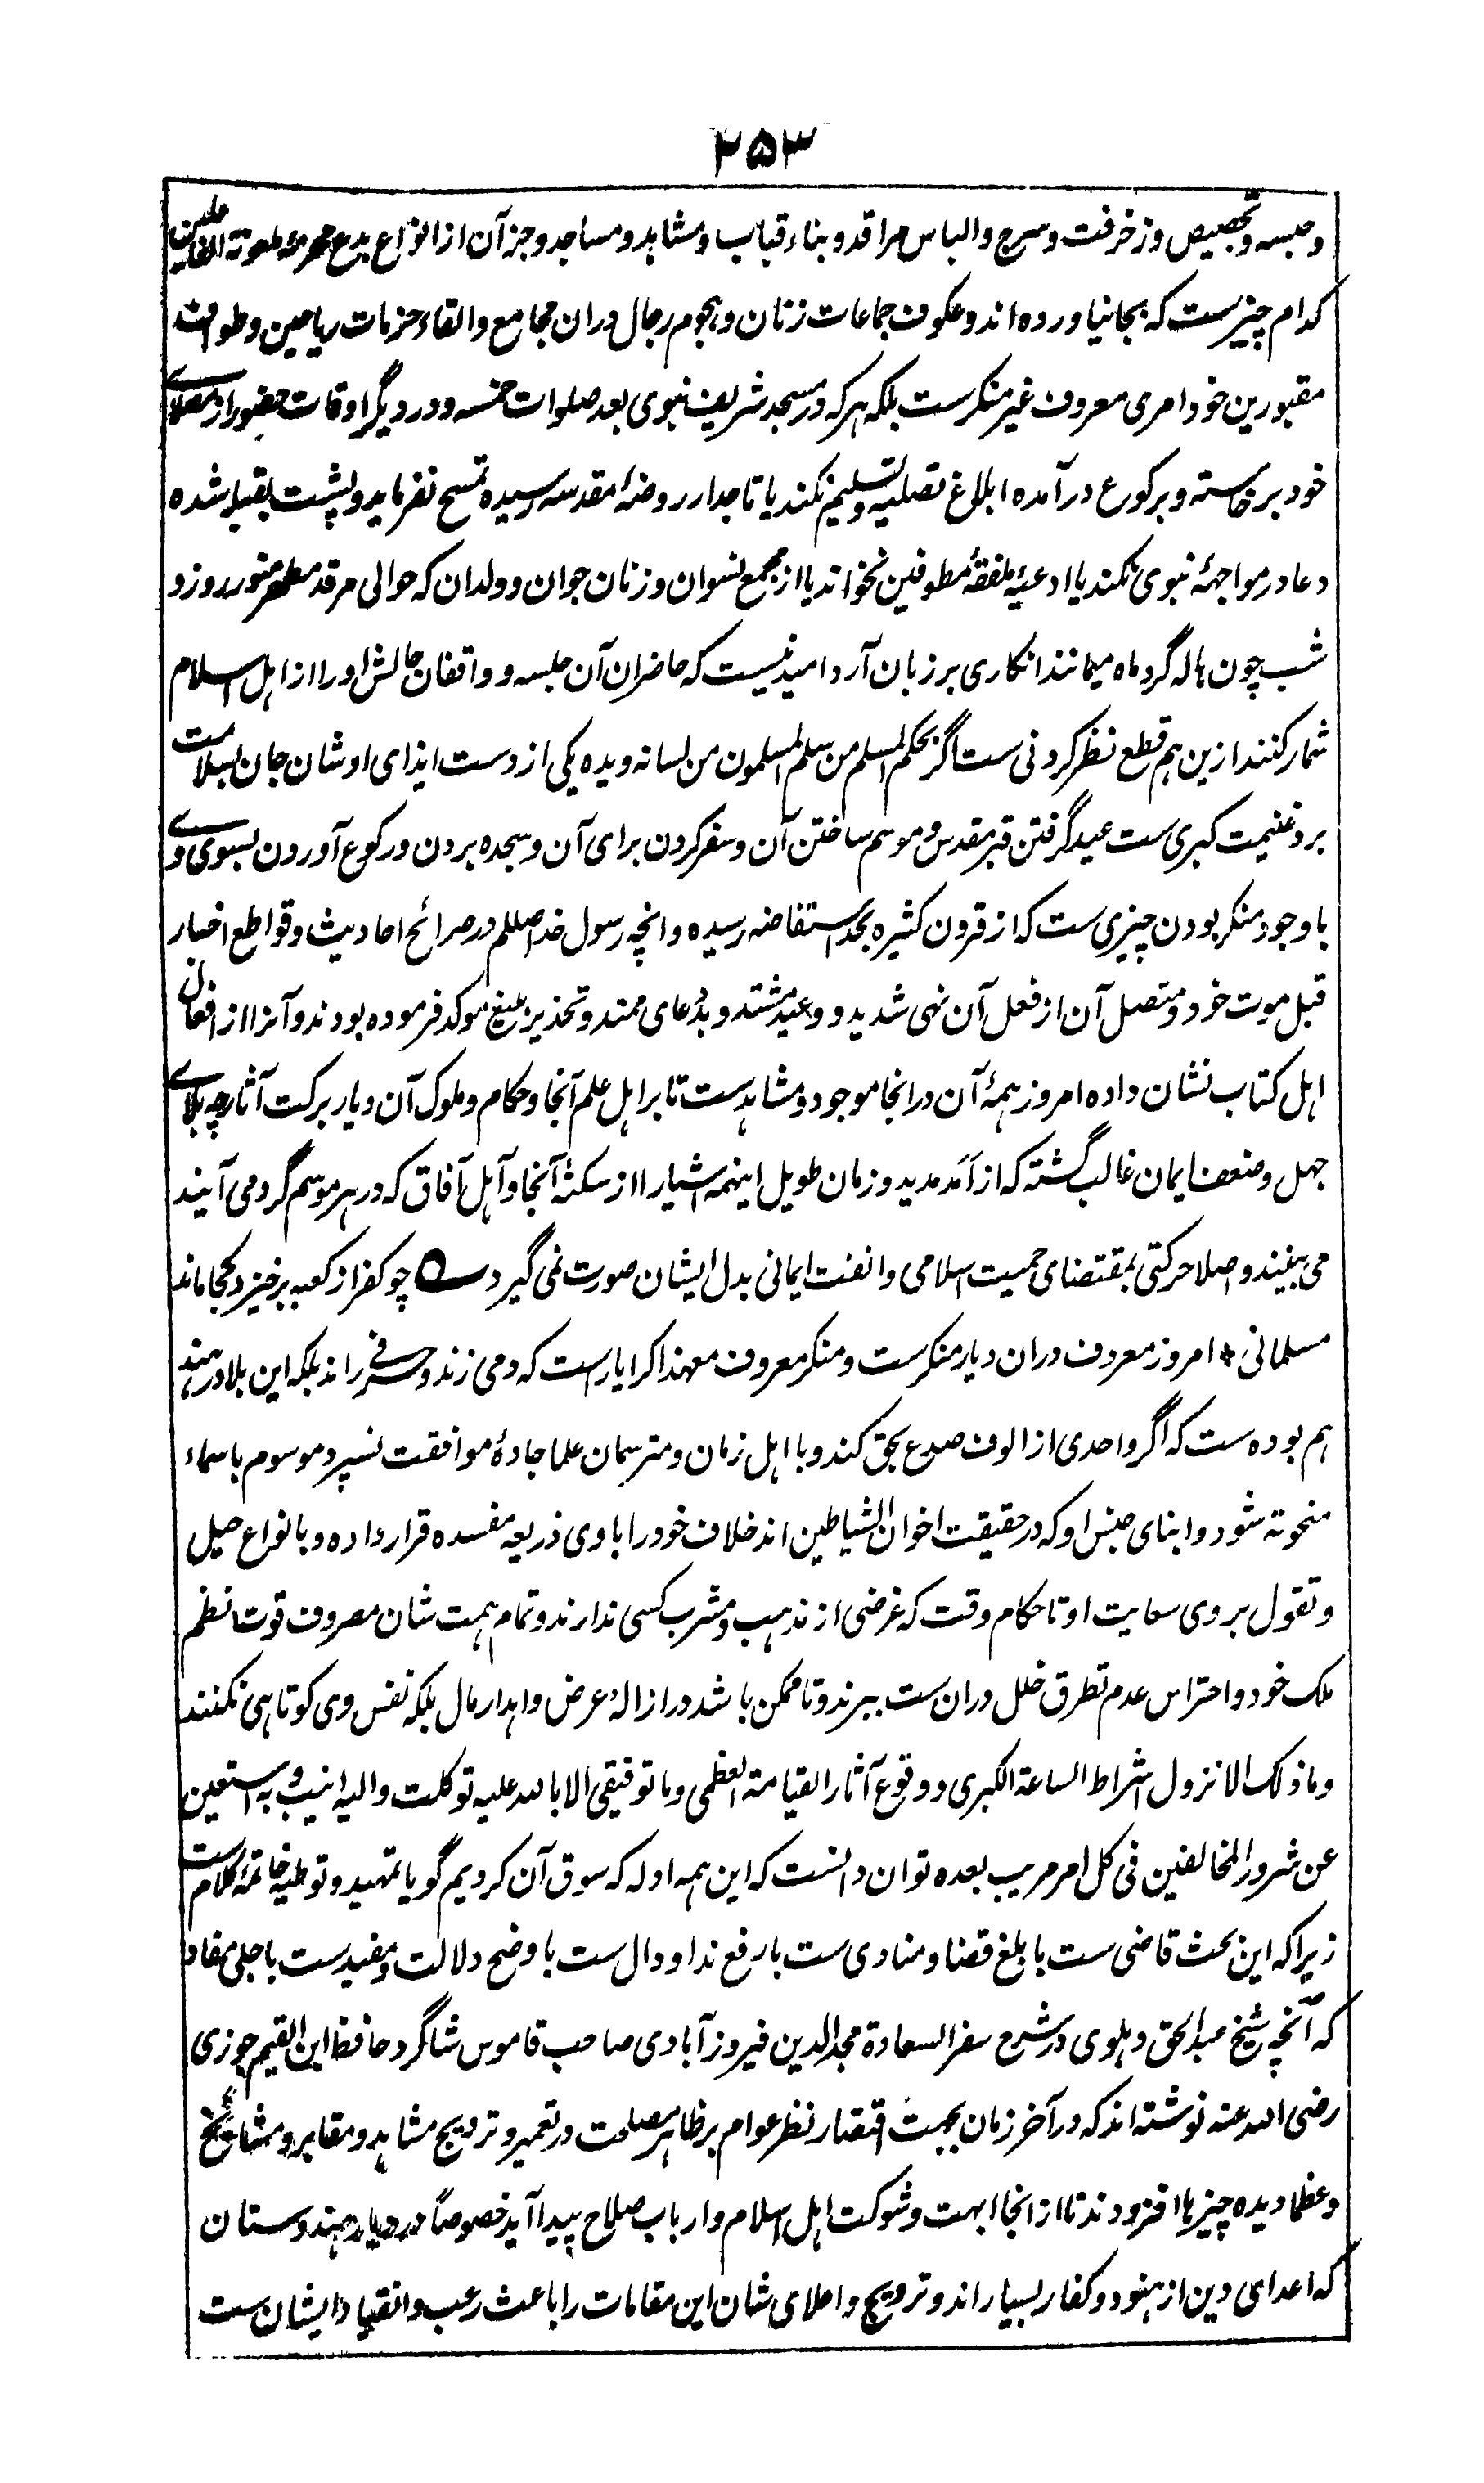 ۲۵۳
وحبسه وتجصیص وزخرفت وسرج والباس مراقد وبناء قباب ومشاهد ومساجد وجز آن از انواع بدع محرمه ملعونة الفاعلین
کدام چیزست که بجا نیاورده اند وعکوف جماعات زنان وهجوم رجال دران مجامع والقاء حزمات ریاحین وطواف
مقبورین خود امری معروف غیر منکرست بلکه هرکه در مسجد شریف نبوی بعد صلوات خمسه ودر دیگر اوقات حضور از مصلای
خود برخاسته وبرکوع درآمده ابلاغ تصلیه وتسلیم نکند یا تا جدار روضهٔ مقدسه رسیده تمسح نفرماید وپشت بقبله شده
دعا در مواجههٔ نبوی نکند یا ادعیهٔ ملفقهٔ مطوفین نخواند یا از مجمع نسوان وزنان جوان وولدان که حوالی مرقد مطهر منور روز و
شب چون هاله گرد ماه میمانند انکاری بر زبان آرد امید نیست که حاضران آن جلسه وواقفان حالش او را از اهل اسلام
شمار کنند ازین هم قطع نظر کردنی ست اگر بحکم المسلم من سلم المسلمون من لسانه ویده یکی از دست ایذای اوشان جان بسلامت
برد غنیمت کبری ست عید گرفتن قبر مقدس وموسم ساختن آن وسفر کردن برای آن وسجده بردن ورکوع آوردن بسوی وی
باوجود منکر بودن چیزی ست که از قرون کثیره بحد استفاضه رسیده وانچه رسول خدا صللم در صرائح احادیث وقواطع اخبار
قبل موت خود ومتصل آن از فعل آن نهی شدید ووعید مشتد وبدعای ممتد وتحذیر بلیغ موکد فرموده بودند وآنرا از افعال
اهل کتاب نشان داده امروز همهٔ آن درانجا موجود ومشاهدست تا بر اهل علم آنجا وحکام وملوک آن دیار برکت آثار چه بلای
جهل وضعف ایمان غالب گشته که از اَمَد مدید وزمان طویل اینهمه اشیا را از سکنهٔ آنجا واهل آفاق که در هر موسم گرد می آیند
می بینند واصلا حرکتی بمقتضای حمیت اسلامی وانفت ایمانی بدل ایشان صورت نمی گیرد ؎ چو کفر از کعبه برخیزد کجا ماند
مسلمانی ٭ امروز معروف دران دیار منکرست ومنکر معروف معهذا کرا یاراست که دمی زند وحرفی راند بلکه این بلا در هند
هم بوده ست که اگر واحدی از الوف صدع بحق کند وبا اهل زمان ومترسمان علما جادهٔ موافقت نسپرد موسوم باسماء
منحوته شود وابنای جنس او که در حقیقت اخوان الشیاطین اند خلاف خود را باوی ذریعه مفسده قرار داده وبانواع حیل
وتقول بروی سعایت او تا حکام وقت که غرضی از مذهب ومشرب کسی ندارند وتمام همت شان مصروف قوت نظم
ملک خود واحتراس عدم تطرق خلل دران ست ببرند وتا ممکن باشد در ازالهٔ عرض واهدار مال بلکه نفس وی کوتاهی نکنند
وما ذلک الا نزول اشراط الساعة الکبری ووقوع آثار القیامة العظمی وما توفیقی الا بالله علیه توکلت والیه انیب وبه استعین
عن شرور المخالفین فی کل امر مریب بعده توان دانست که این همه ادله که سوق آن کردیم گویا تمهید وتوطیه خاتمهٔ کلام ست
زیراکه این بحث قاضی ست بابلغ قضا ومنادی ست بارفع ندا ودال ست باوضح دلالت ومفیدست باجلی مفاد
که آنچه شیخ عبدالحق دهلوی در شرح سفر السعادة مجدالدین فیروزآبادی صاحب قاموس شاگرد حافظ ابن القیم جوزی
رضی الله عنه نوشته اند که در آخر زمان بجهت اقتصار نظر عوام بر ظاهر مصلحت در تعمیر وترویج مشاهد ومقابر ومشایخ
وعظما دیده چیزها افزودند تا از انجا ابهت وشوکت اهل اسلام وارباب صلاح پیدا آید خصوصاً در دیار هندوستان
که اعدای دین از هنود وکفار بسیار اند وترویج واعلای شان این مقامات را باعث رعب وانقیاد ایشان ست